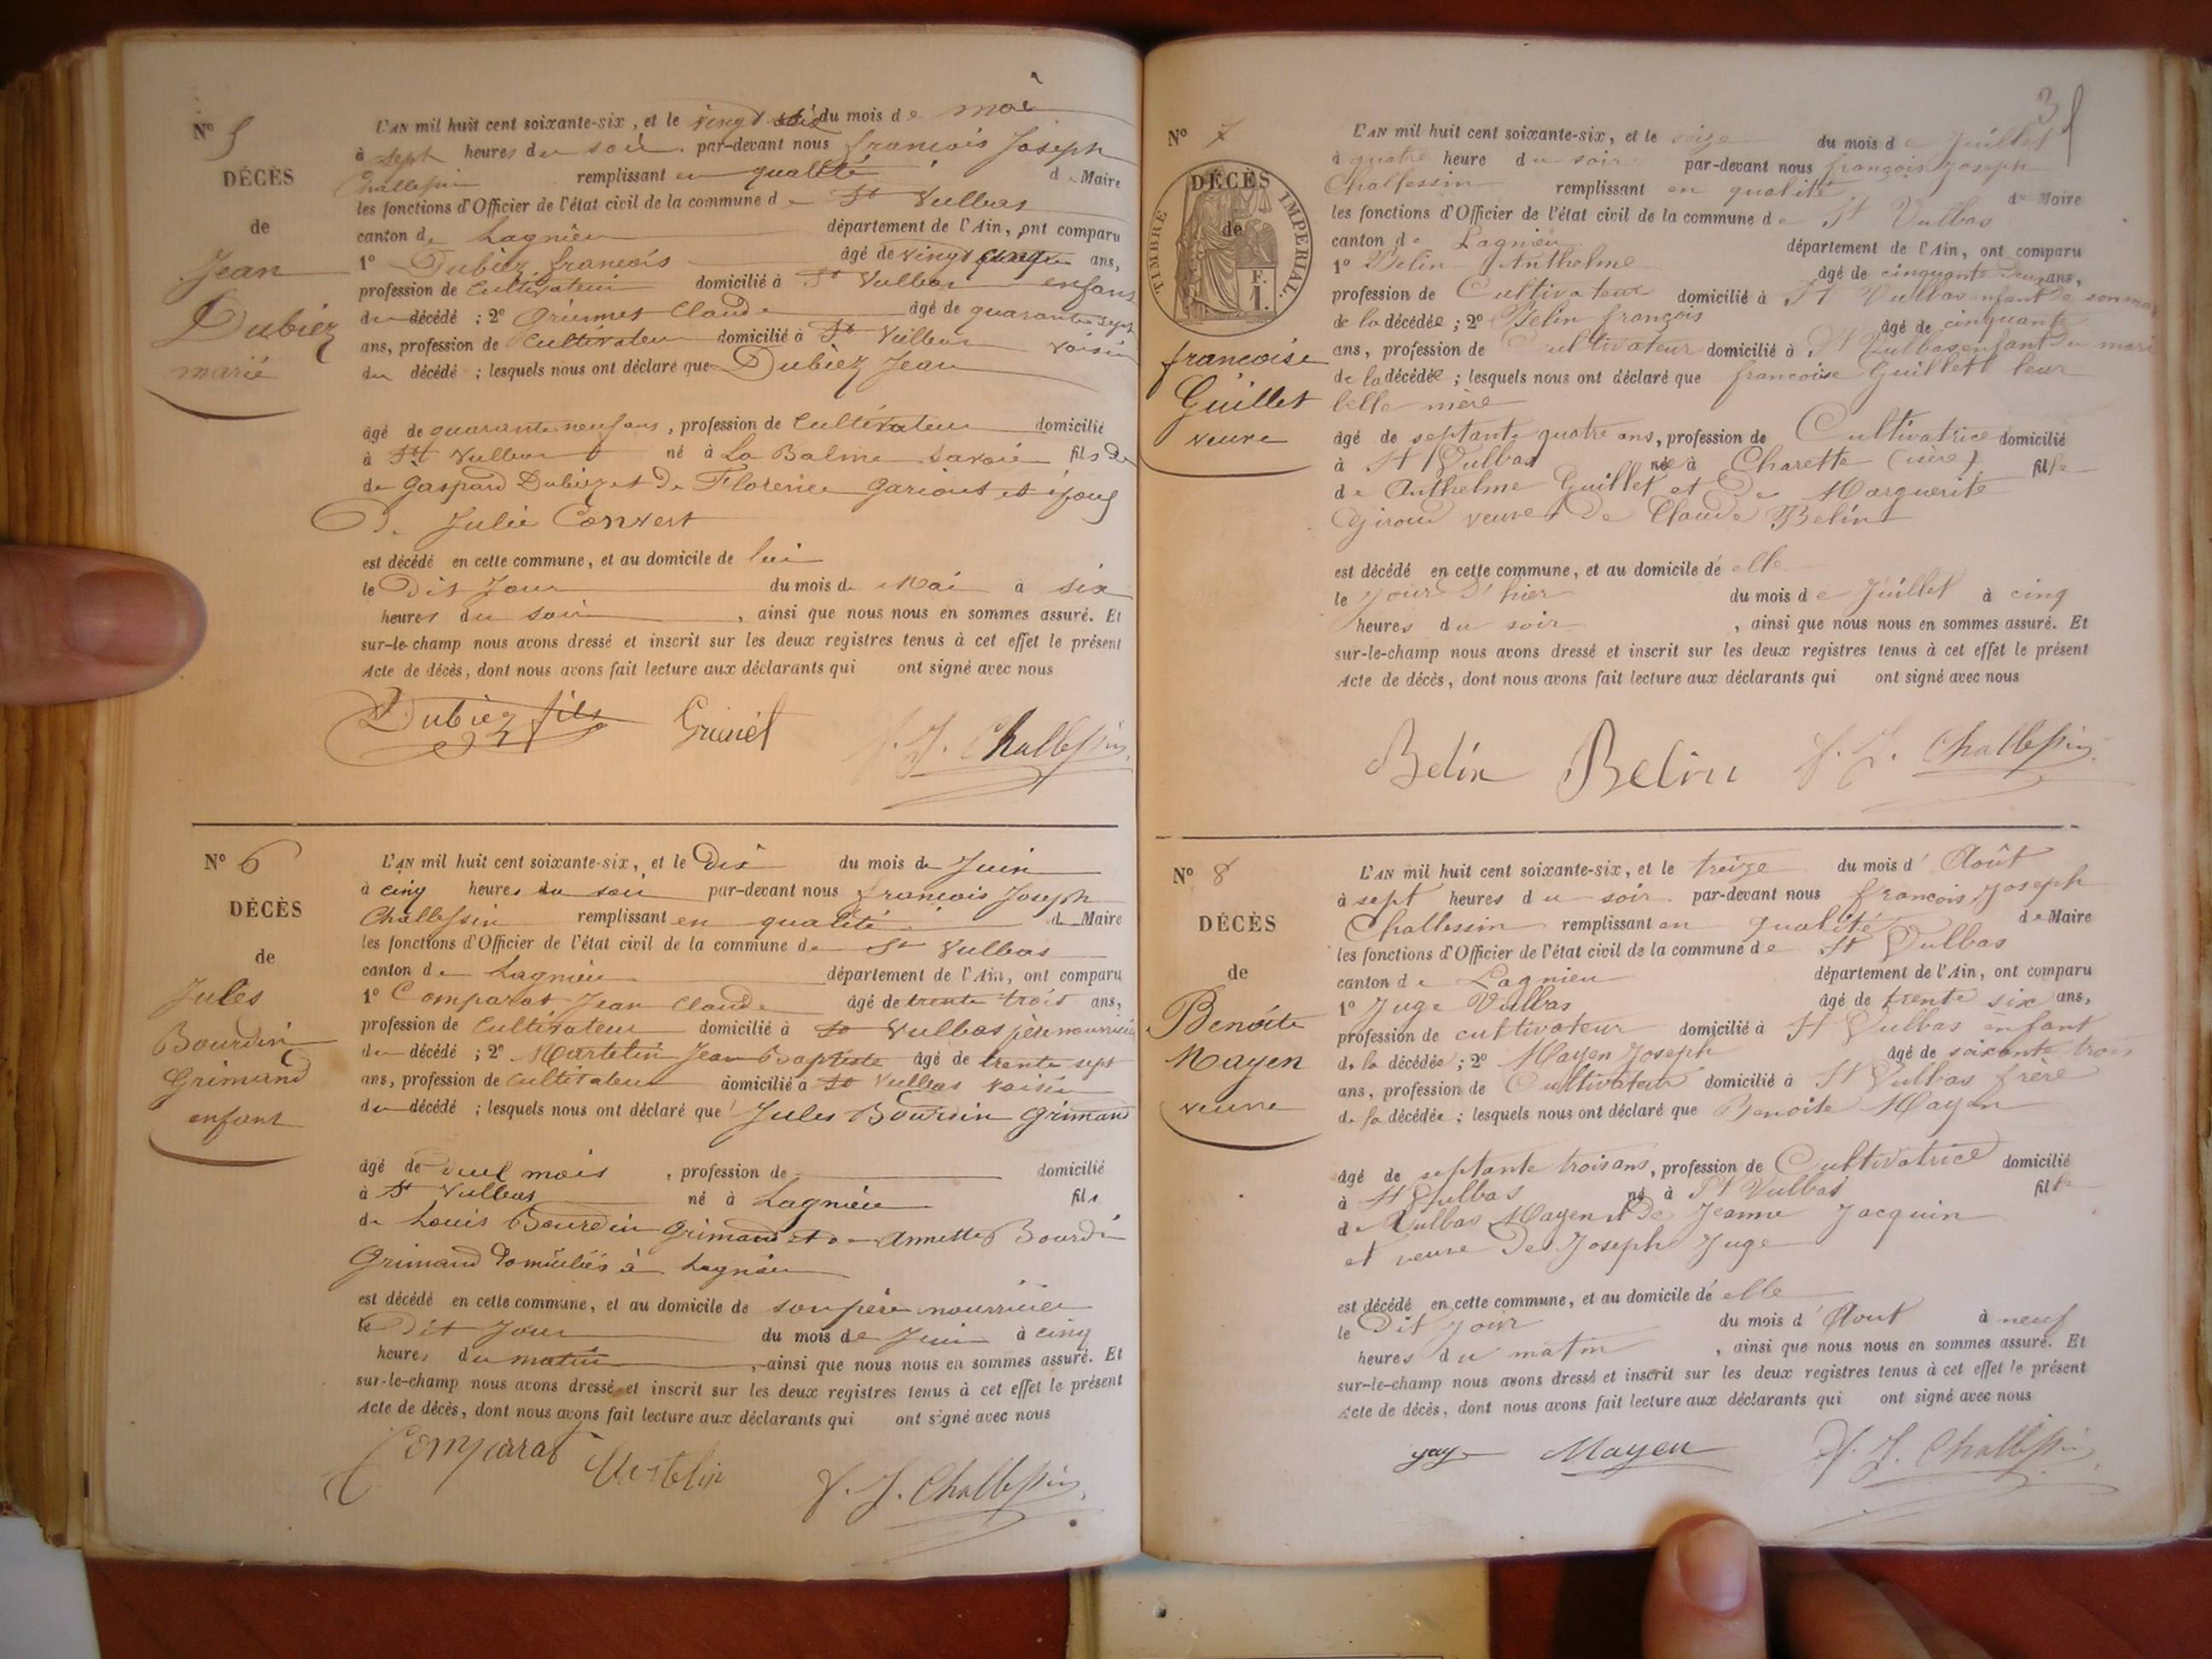 Nº 5
DÉCÈS
de
Jean
Dubiez
marié
L'AN mil huit cent soixante-six, et le vingt du mois de mai
à sept heures du soir par-devant nous francois Joseph
Challessin remplissant en qualité de Maire
les fonctions d'Officier de l'état civil de la commune de St Vulbas
canton de Lagnieu département de l'Ain, ont comparu
1º Dubiez francois âgé de vingt cinq ans,
profession de Cultivateur domicilié à St Vulbas enfant
du décédé ; 2º Claude âgé de quarante sept
ans, profession de Cultivateur domicilié à St Vulbas voisin
du décédé ; lesquels nous ont déclaré que Dubiez Jean
âgé de quarante neuf ans, profession de Cultivateur domicilié
à St Vulbas né à La Balme Savoie fils de
de Gaspard Dubiez et de Florence et époux
De Julie Convert
est décédé en cette commune, et au domicile de lui
le Dit Jour du mois de Mai à six
heures du soir, ainsi que nous nous en sommes assuré. Et
sur-le-champ nous avons dressé et inscrit sur les deux registres tenus à cet effet le présent
Acte de décès, dont nous avons fait lecture aux déclarants qui ont signé avec nous
Dubiez fils f. J. Challessin
Nº 6
DÉCÈS
de
Jules
Bourdin
Grimand
enfant
L'AN mil huit cent soixante-six, et le Dix du mois de Juin
à cinq heures du soir par-devant nous francois Joseph
Challessin remplissant en qualité de Maire
les fonctions d'Officier de l'état civil de la commune de St Vulbas
canton de Lagnieu département de l'Ain, ont comparu
1º Comparat Jean Claude âgé de trente trois ans,
profession de Cultivateur domicilié à St Vulbas père nourricier
du décédé ; 2º Martelin Jean Baptiste âgé de trente sept
ans, profession de Cultivateur domicilié à St Vulbas voisin
du décédé ; lesquels nous ont déclaré que Jules Bourdin Grimand
âgé de mois, profession de domicilié
à St Vulbas né à Lagnieu fils
de Louis Bourdin Grimand et de Annette Bourdin
Grimand Domiciliés à Lagnieu
est décédé en cette commune, et au domicile de son père nourricier
le Dit Jour du mois de Juin à cinq
heures du matin, ainsi que nous nous en sommes assuré. Et
sur-le-champ nous avons dressé et inscrit sur les deux registres tenus à cet effet le présent
Acte de décès, dont nous avons fait lecture aux déclarants qui ont signé avec nous
Comparat Martelin f. J. Challessin
3
Nº 7
DÉCÈS
de
TIMBRE IMPERIAL.
F.
1.
francoise
Guillet
veuve
L'AN mil huit cent soixante-six, et le seize du mois de Juillet
à quatre heure du soir par-devant nous françois Joseph
Challessin remplissant en qualité de Maire
les fonctions d'Officier de l'état civil de la commune de St Vulbas
canton de Lagnieu département de l'Ain, ont comparu
1º Belin Anthelme âgé de cinquante deux ans,
profession de Cultivateur domicilié à St Vulbas enfant de son mari
de la décédée ; 2º Belin françois âgé de cinquante
ans, profession de Cultivateur domicilié à St Vulbas enfant du mari
de la décédée ; lesquels nous ont déclaré que francoise Guillet leur
belle mère
âgé de septante quatre ans, profession de Cultivatrice domicilié
à St Vulbas née à Charette (isère) fille
de Anthelme Guillet et De Marguerite
Giroud veuve De Claude Belin
est décédé en cette commune, et au domicile de elle
le Jour D'hier du mois de Juillet à cinq
heures du soir, ainsi que nous nous en sommes assuré. Et
sur-le-champ nous avons dressé et inscrit sur les deux registres tenus à cet effet le présent
Acte de décès, dont nous avons fait lecture aux déclarants qui ont signé avec nous
Belin Belin f. J. Challessin
Nº 8
DÉCÈS
de
Benoite
Mayen
veuve
L'AN mil huit cent soixante-six, et le treize du mois d'Août
à sept heures du soir par-devant nous francois Joseph
Challessin remplissant en qualité de Maire
les fonctions d'Officier de l'état civil de la commune de St Vulbas
canton de Lagnieu département de l'Ain, ont comparu
1º Juge Vulbas âgé de trente six ans,
profession de cultivateur domicilié à St Vulbas enfant
de la décédée ; 2º Mayen Joseph âgé de soixante trois
ans, profession de Cultivateur domicilié à St Vulbas frere
de la décédée ; lesquels nous ont déclaré que Benoite Mayen
âgé de septante trois ans, profession de Cultivatrice domicilié
à St Vulbas né à St Vulbas fille
de Vulbas Mayen et De Jeanne Jacquin
et veuve De Joseph Juge
est décédé en cette commune, et au domicile de elle
le Dit Jour du mois d'Aout à neuf
heures du matin, ainsi que nous nous en sommes assuré. Et
sur-le-champ nous avons dressé et inscrit sur les deux registres tenus à cet effet le présent
Acte de décès, dont nous avons fait lecture aux déclarants qui ont signé avec nous
Mayen f. J. Challessin